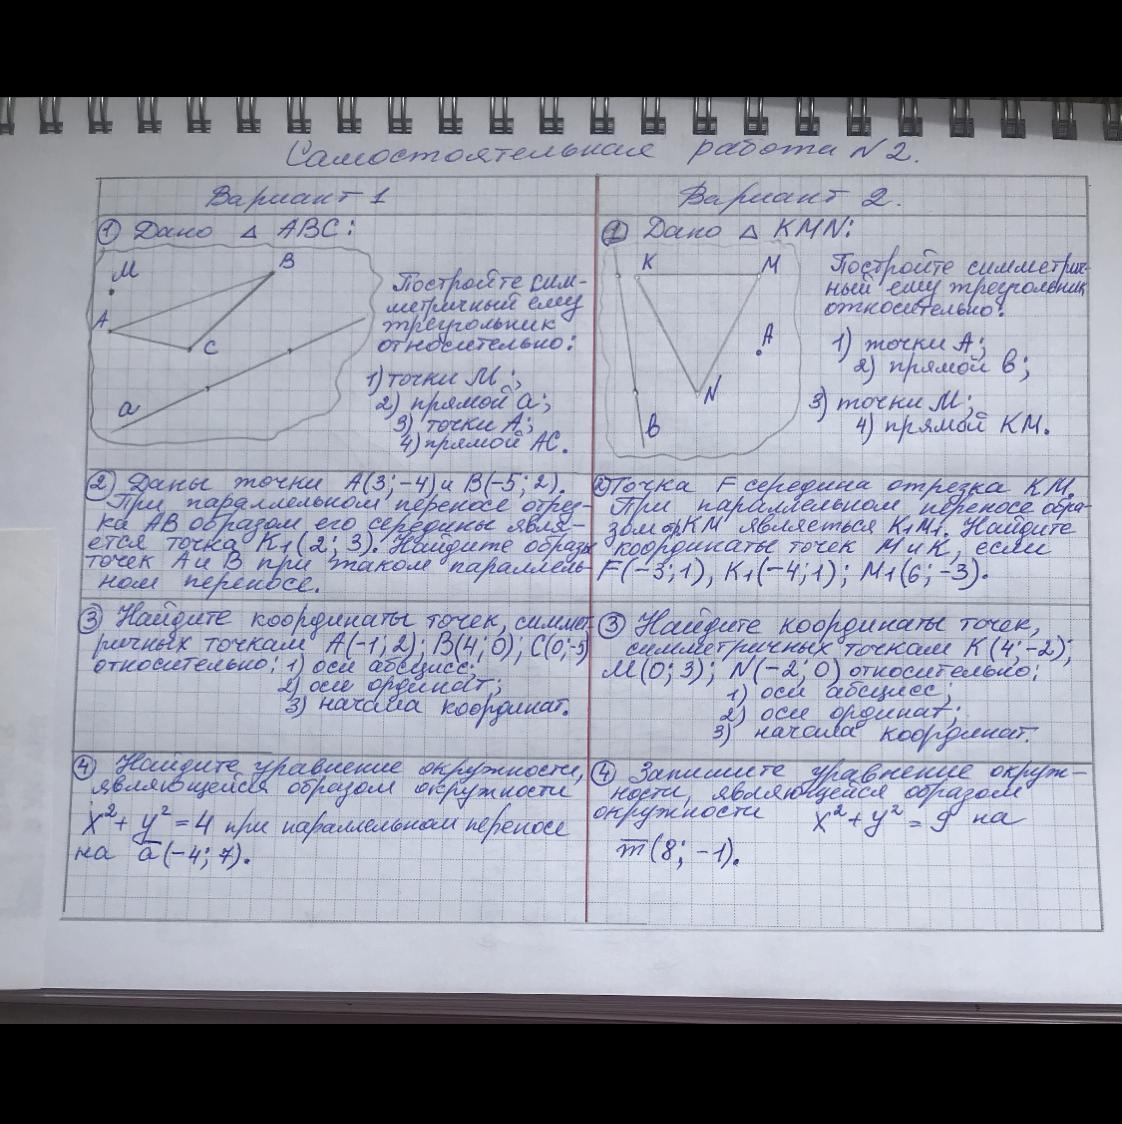 Самостоятельная работа N2.
Вариант 1
① Дано △ ABC:
M
B
A
C
a
Постройте сим-
метричный ему
треугольник
относительно:
1) точки M;
2) прямой a;
3) точки A;
4) прямой AC.
② Даны точки A(3; -4) и B(-5; 2).
При параллельном переносе отрез-
ка AB образом его середины явля-
ется точка K₁(2; 3). Найдите образы
точек A и B при таком параллель-
ном переносе.
③ Найдите координаты точек, симмет-
ричных точкам A(-1; 2); B(4; 0); C(0; -5)
относительно: 1) оси абсцисс;
2) оси ординат;
3) начала координат.
④ Найдите уравнение окружности,
являющейся образом окружности
x² + y² = 4 при параллельном переносе
на a̅ (-4; 7).
Вариант 2.
① Дано △ KMN:
K
M
A
N
в
Постройте симметрич-
ный ему треугольник
относительно:
1) точки A;
2) прямой в;
3) точки M;
4) прямой KM.
② Точка F середина отрезка KM.
При параллельном переносе обра-
зом отр. KM являеться K₁M₁. Найдите
координаты точек M и K, если
F(-3; 1), K₁(-4; 1); M₁(6; -3).
③ Найдите координаты точек,
симметричных точкам K(4; -2);
M(0; 3); N(-2; 0) относительно:
1) оси абсцисс;
2) оси ординат;
3) начала координат.
④ Запишите уравнение окруж-
ности, являющейся образом
окружности x² + y² = 9 на
m̅ (8; -1).